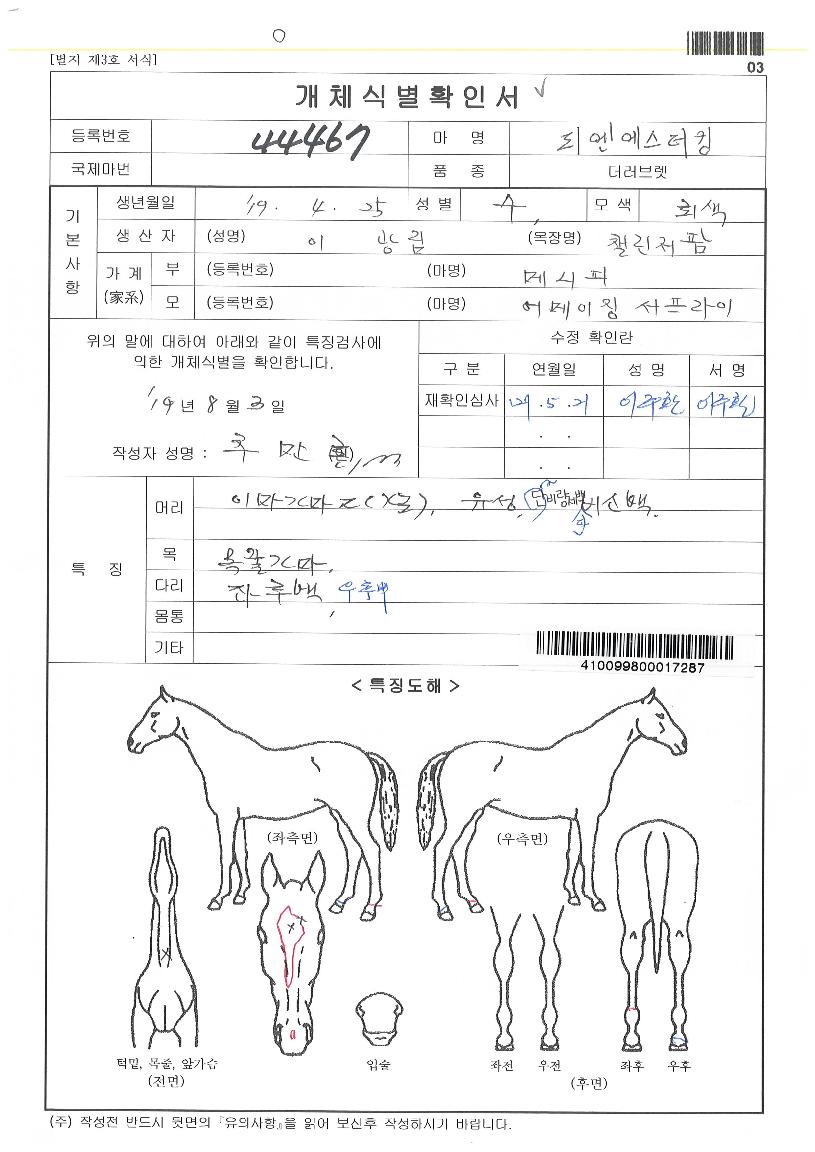 [별지 제3호 서식]
03
개체식별확인서
등록번호 44467 마 명 티엔에스터킹
국제마번 품 종 더러브렛
기본사항
생년월일 '19. 4. 25 성 별 수 모 색 회색
생 산 자 (성명) 이 광림 (목장명) 챌린저팜
가 계 (家系) 부 (등록번호) (마명) 메니피
모 (등록번호) (마명) 어메이징 서프라이
위의 말에 대하여 아래와 같이 특징검사에
의한 개체식별을 확인합니다.
'19년 8 월 3 일
작성자 성명 :
수정 확인란
구 분 연월일 성 명 서 명
재확인심사 '21 . 5 . 21 이주환
. .
. .
특 징
머리 이마가마 2(X표), 유성, 비량 비신백.
목 목줄가마,
다리 좌후백 우후백
몸통
기타
410099800017287
< 특징도해 >
(좌측면) (우측면)
턱밑, 목줄, 앞가슴
(전면)
입술
좌전 우전
좌후 우후
(후면)
(주) 작성전 반드시 뒷면의 『유의사항』을 읽어 보신후 작성하시기 바랍니다.